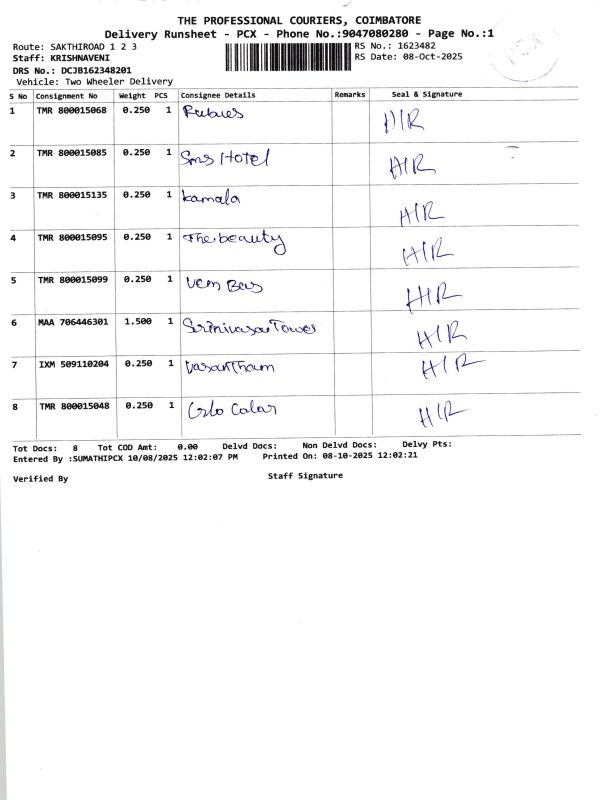 THE PROFESSIONAL COURIERS, COIMBATORE
Delivery Runsheet - PCX - Phone No.:9047080280 - Page No.:1
Route: SAKTHIROAD 1 2 3
RS No.: 1623482
Staff: KRISHNAVENI
RS Date: 08-Oct-2025
DRS No.: DCJB162348201
Vehicle: Two Wheeler Delivery
PCX
S No Consignment No Weight PCS Consignee Details Remarks Seal & Signature
1 TMR 800015068 0.250 1 H/R
2 TMR 800015085 0.250 1 Sms Hotel H/R
3 TMR 800015135 0.250 1 kamala H/R
4 TMR 800015095 0.250 1 The beauty H/R
5 TMR 800015099 0.250 1 H/R
6 MAA 706446301 1.500 1 Srinivasa Tower H/R
7 IXM 509110204 0.250 1 Vasantham H/R
8 TMR 800015048 0.250 1 H/R
Tot Docs: 8 Tot COD Amt: 0.00 Delvd Docs: Non Delvd Docs: Delvy Pts:
Entered By :SUMATHIPCX 10/08/2025 12:02:07 PM Printed On: 08-10-2025 12:02:21
Verified By Staff Signature